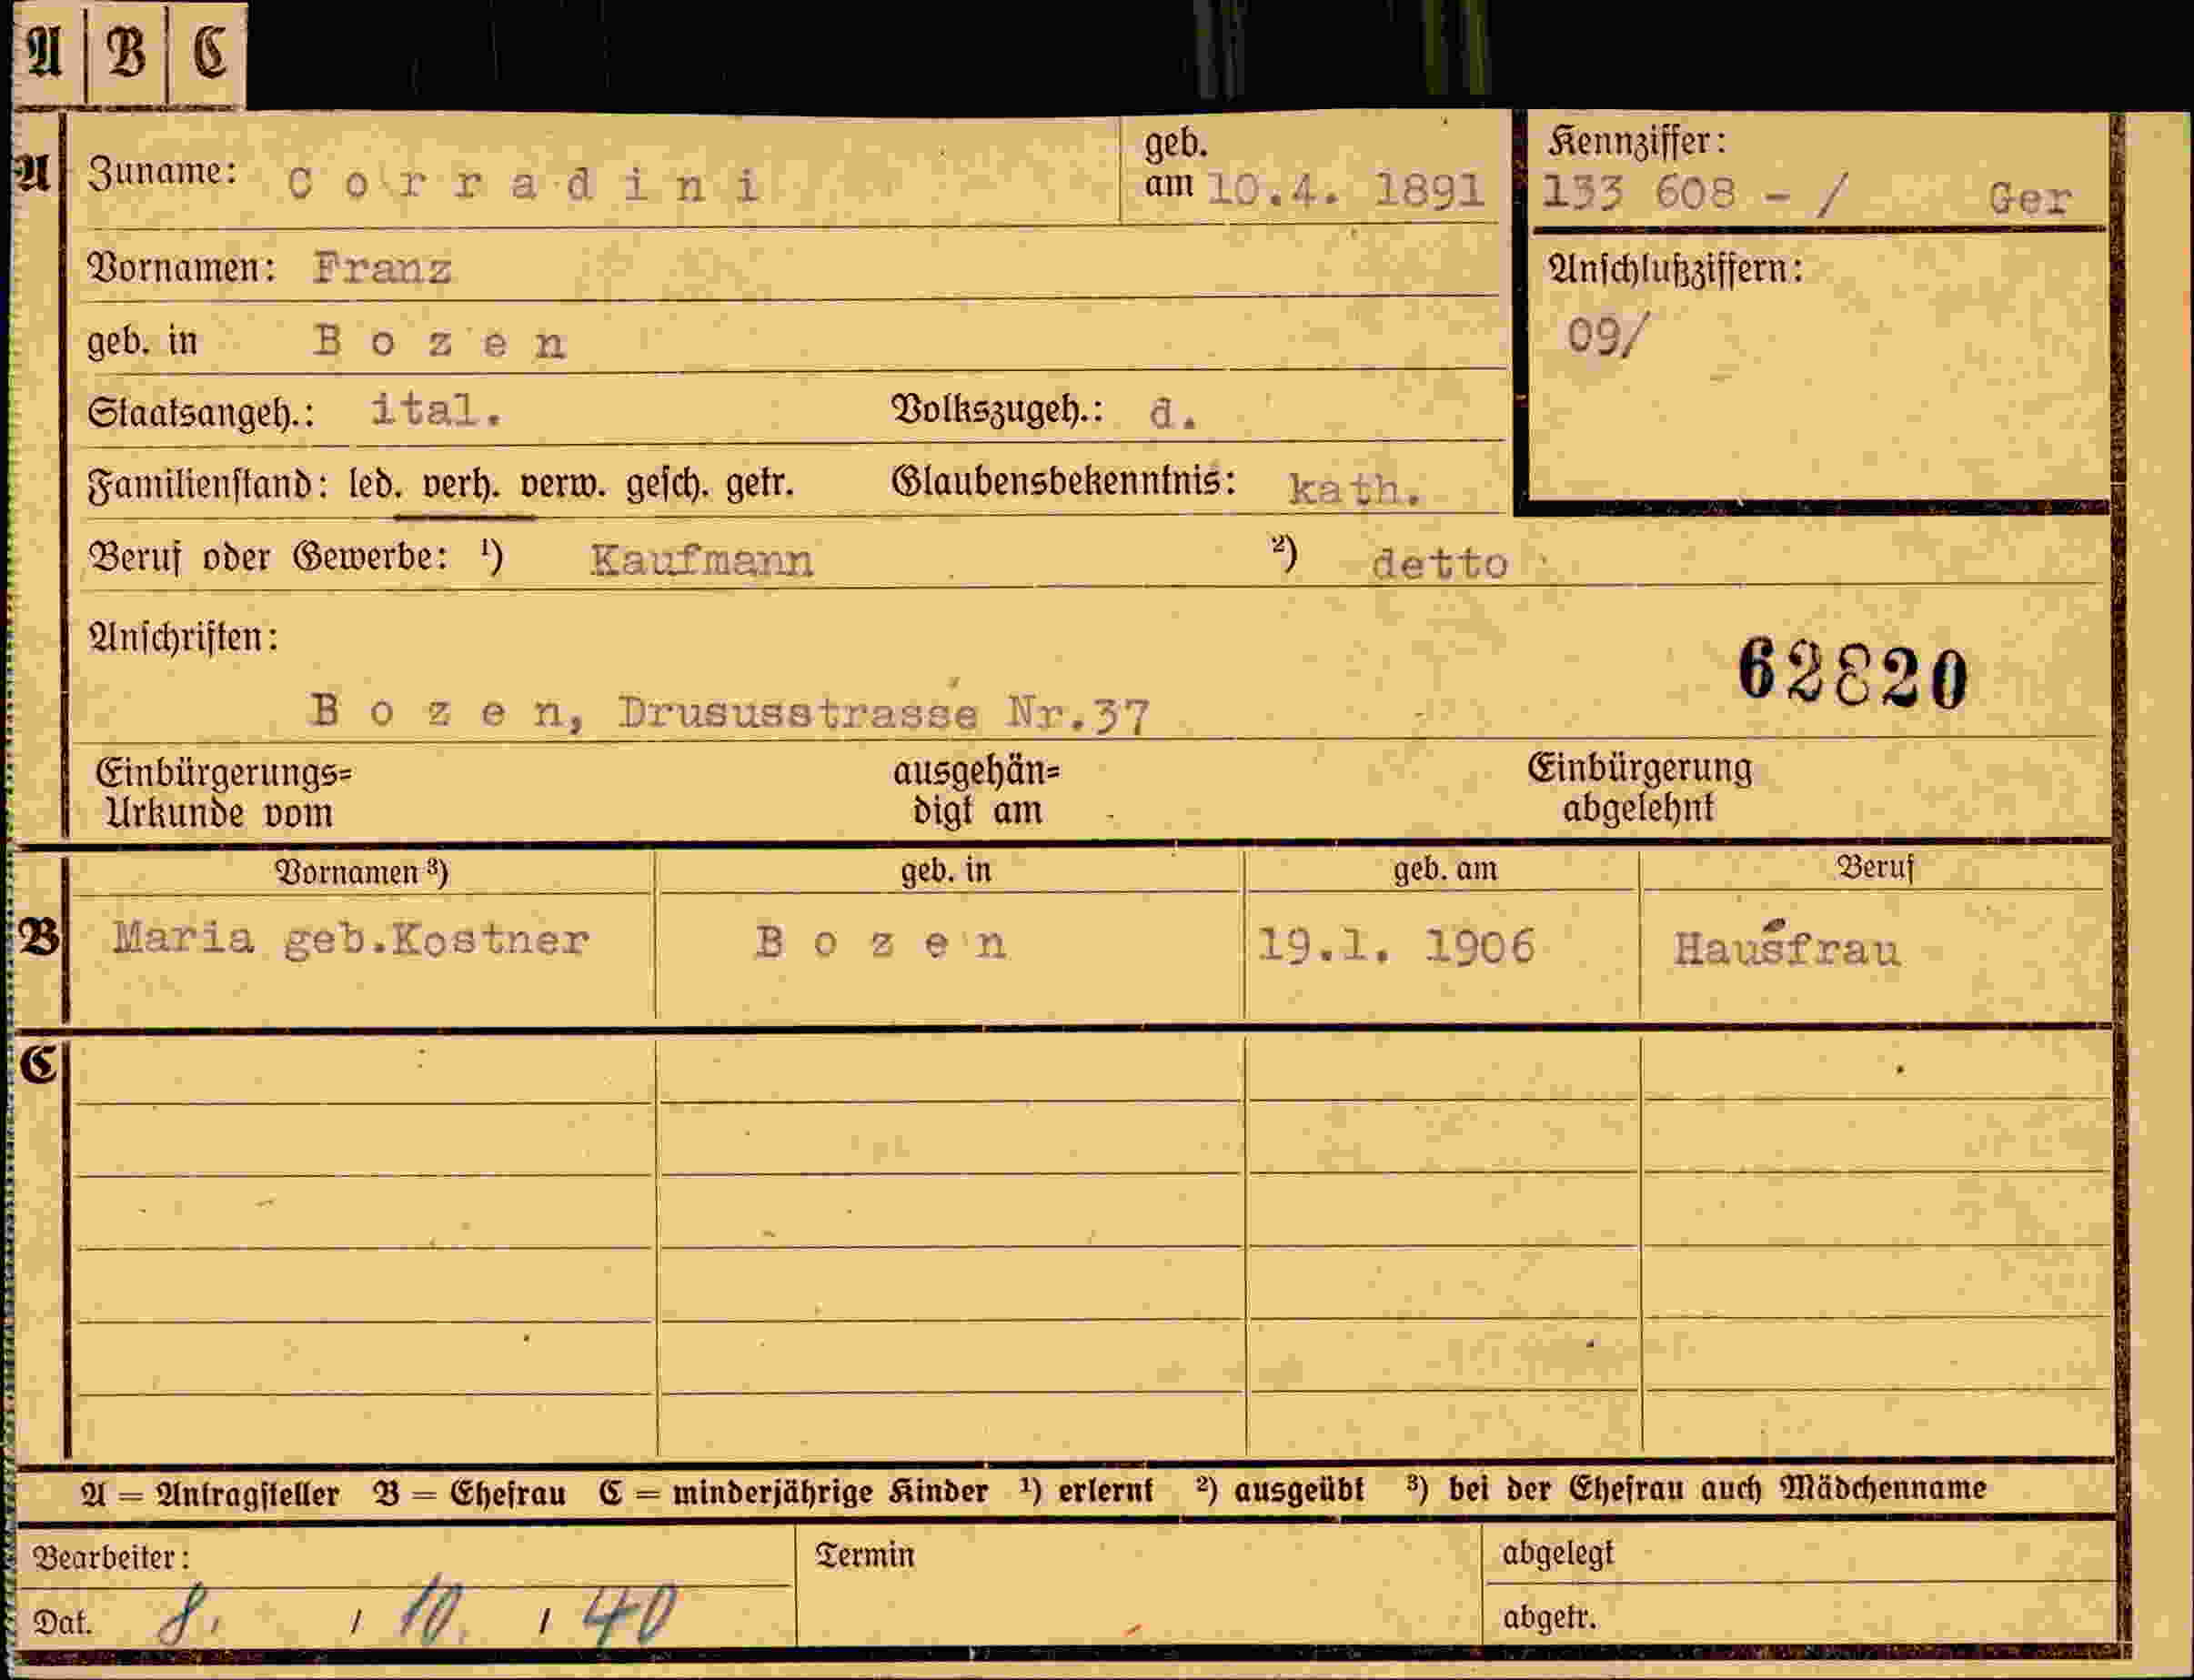 A B C
A Zuname: C o r r a d i n i geb. am 10.4. 1891 Kennziffer: 133 608 - / Ger
Vornamen: Franz
Anschlußziffern:
geb. in B o z e n 09/
Staatsangeh.: ital. Volkszugeh.: d.
Familienstand: led. verh. verw. gesch. getr. Glaubensbekenntnis: kath.
Beruf oder Gewerbe: ¹) Kaufmann ²) detto
Anschriften:
62820
B o z e n, Drususstrasse Nr.37
Einbürgerungs= ausgehän= Einbürgerung
Urkunde vom digt am abgelehnt
Vornamen ³) geb. in geb. am Beruf
B Maria geb.Kostner B o z e n 19.1. 1906 Hausfrau
C
A = Antragsteller B = Ehefrau C = minderjährige Kinder ¹) erlernt ²) ausgeübt ³) bei der Ehefrau auch Mädchenname
Bearbeiter: Termin abgelegt
Dat. 8. / 10. / 40 abgetr.